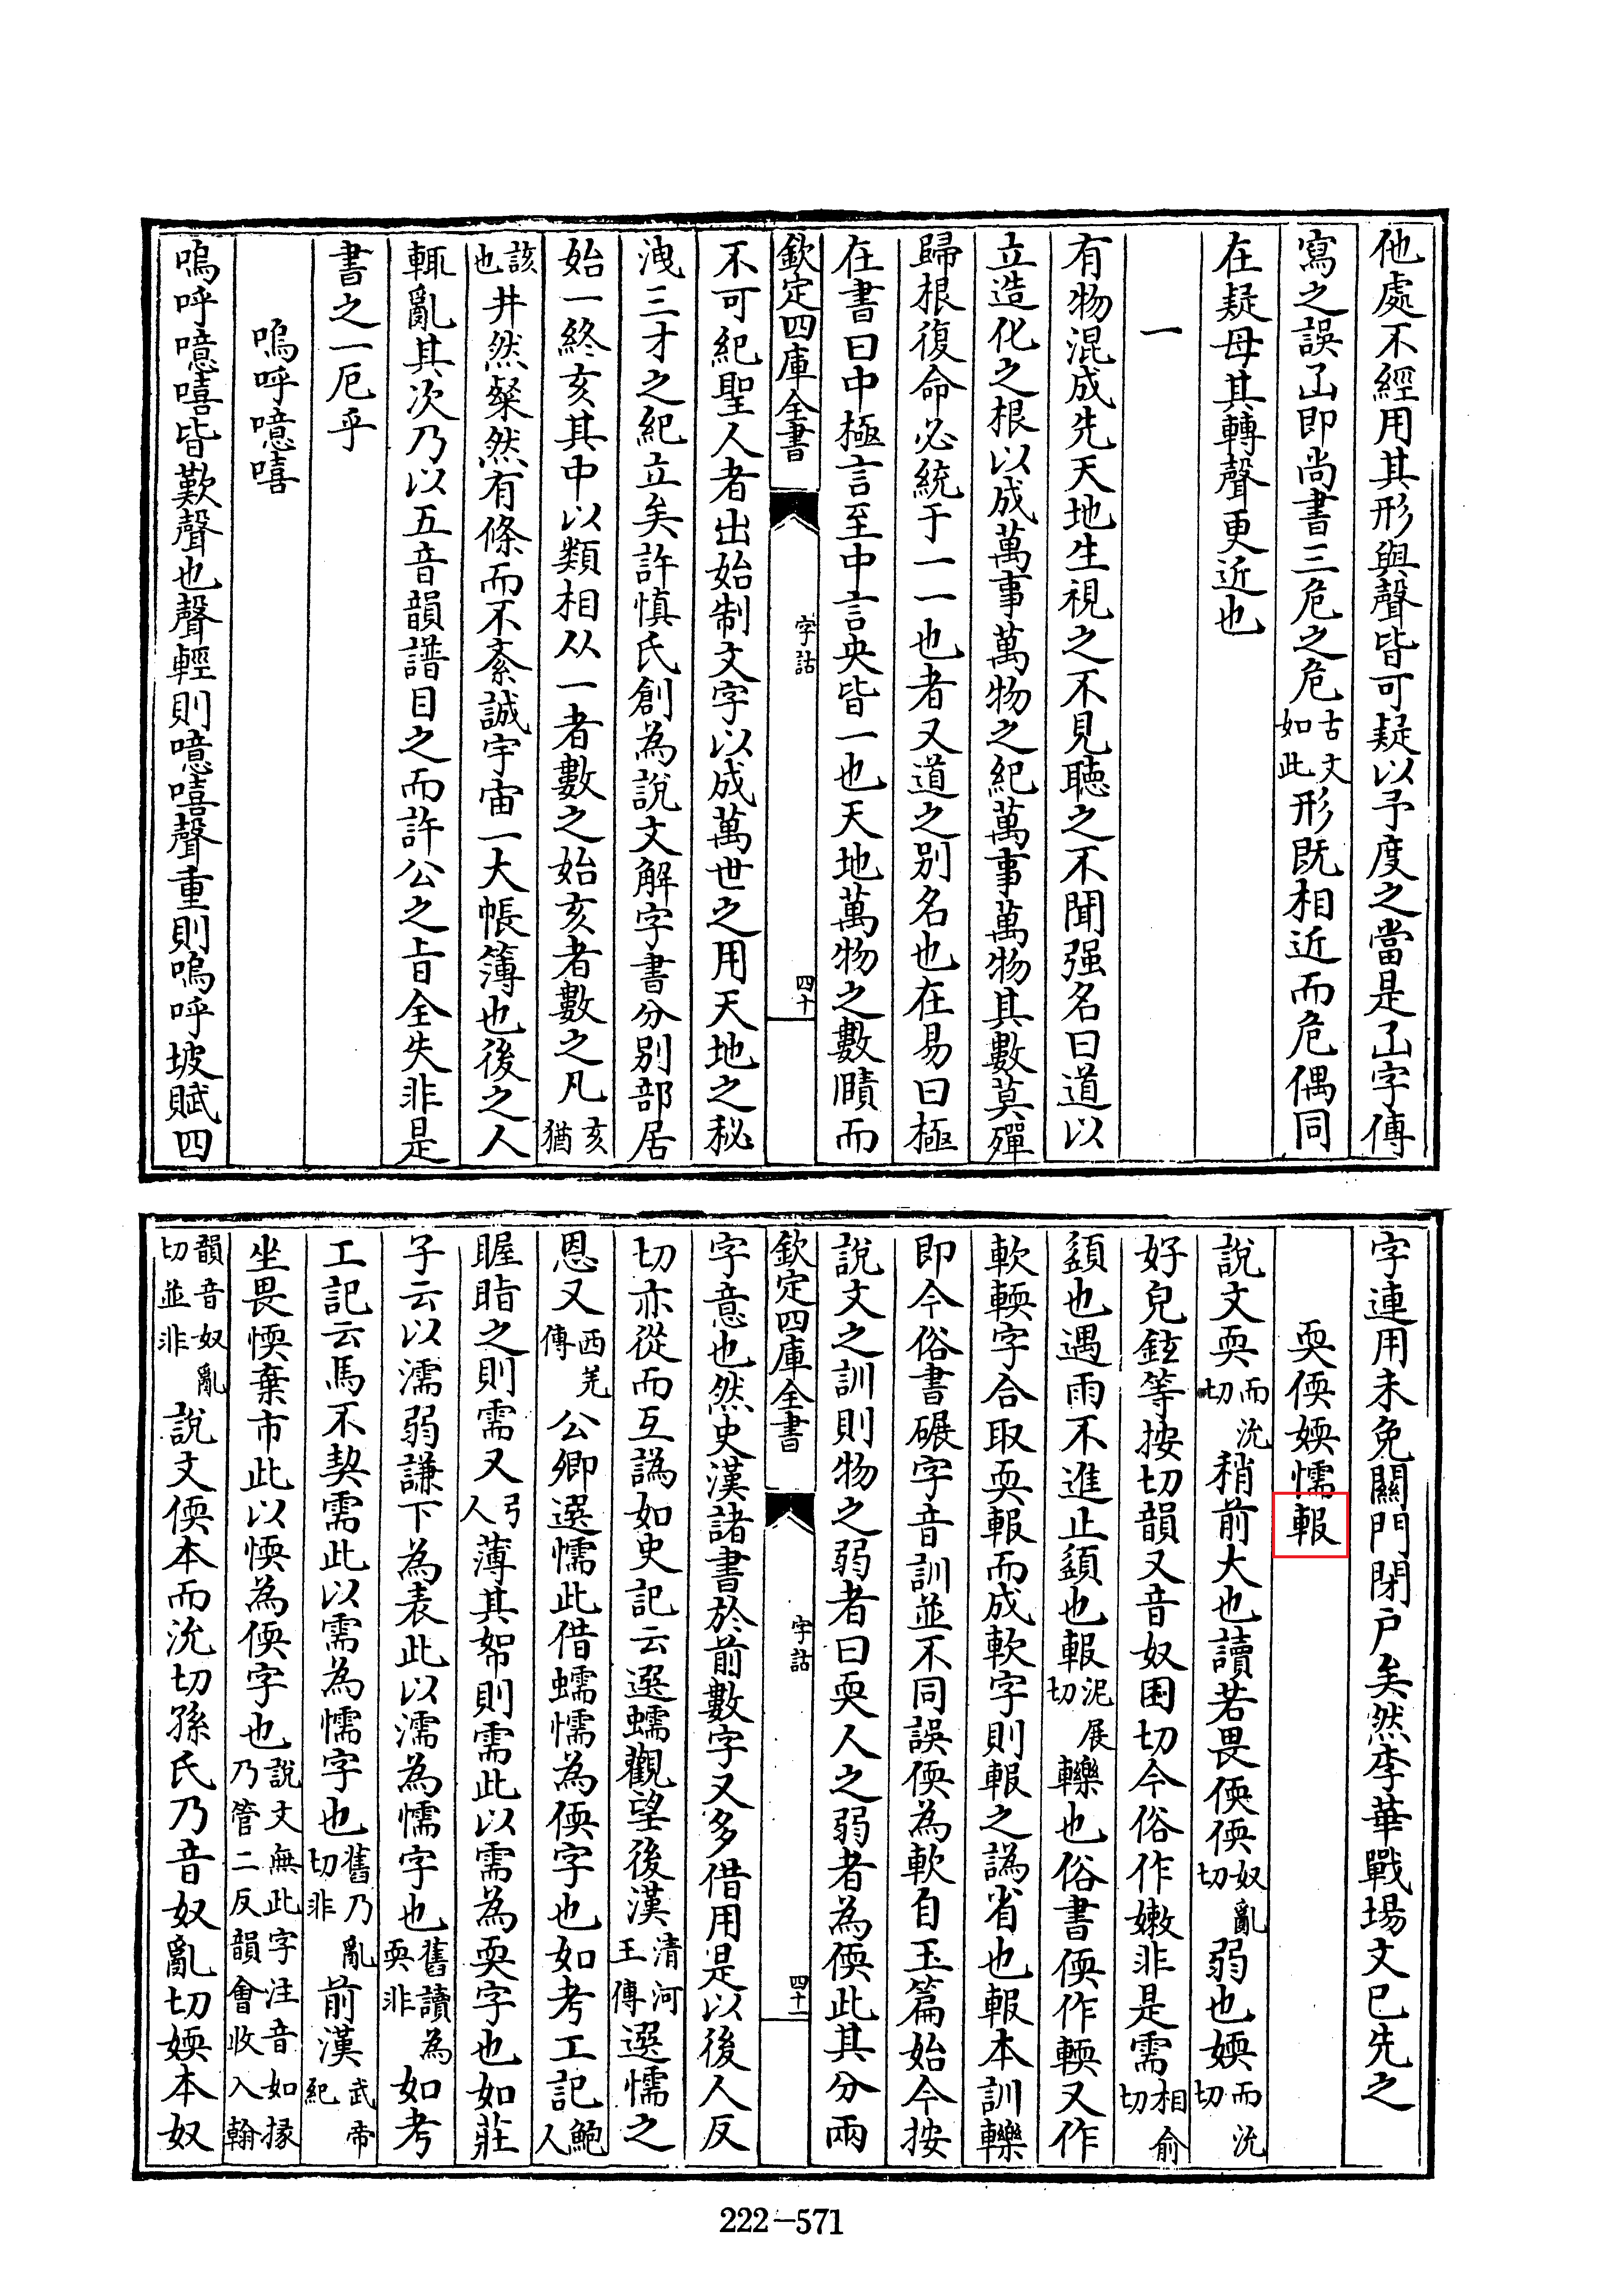 他處不經用其形與聲皆可疑以予度之當是㔾字傳
寫之誤㔾即尚書三危之危古文如此形既相近而危偶同
在疑母其轉聲更近也
一
有物混成先天地生視之不見聽之不聞强名曰道以
立造化之根以成萬事萬物之紀萬事萬物其數莫殫
歸根復命必統于一一也者又道之別名也在易曰極
在書曰中極言至中言央皆一也天地萬物之數賾而
欽定四庫全書
字詁
四十
不可紀聖人者出始制文字以成萬世之用天地之秘
洩三才之紀立矣許慎氏創為說文解字書分別部居
始一終亥其中以類相从一者數之始亥者數之凡亥猶
該也井然粲然有條而不紊誠宇宙一大帳簿也後之人
輒亂其次乃以五音韻譜目之而許公之旨全失非是
書之一厄乎
嗚呼噫嘻
嗚呼噫嘻皆歎聲也聲輕則噫嘻聲重則嗚呼坡賦四
字連用未免關門閉户矣然李華戰場文已先之
耎偄媆懦𨋚
說文耎而沇切稍前大也讀若畏偄偄奴亂切弱也媆而沇切
好皃鉉等按切韻又音奴困切今俗作嫩非是需相俞切
䇓也遇雨不進止䇓也𨋚泥展切轢也俗書偄作輭又作
軟輭字合取耎𨋚而成軟字則𨋚之譌省也𨋚本訓轢
即今俗書碾字音訓並不同誤偄為軟自玉篇始今按
說文之訓則物之弱者曰耎人之弱者為偄此其分兩
欽定四庫全書
字詁
四十一
字意也然史漢諸書於前數字又多借用是以後人反
切亦從而互譌如史記云選蠕觀望後漢清河王傳選懦之
恩又西羌傳公卿選懦此借蠕懦為偄字也如考工記鮑人
腛脂之則需又弓人薄其帤則需此以需為耎字也如莊
子云以濡弱謙下為表此以濡為懦字也舊讀為耎非如考
工記云馬不契需此以需為懦字也舊乃亂切非前漢武帝紀
坐畏愞棄市此以愞為偄字也說文無此字注音如掾乃管二反韻會收入翰
韻音奴亂切並非說文偄本而沇切孫氏乃音奴亂切媆本奴
222-571